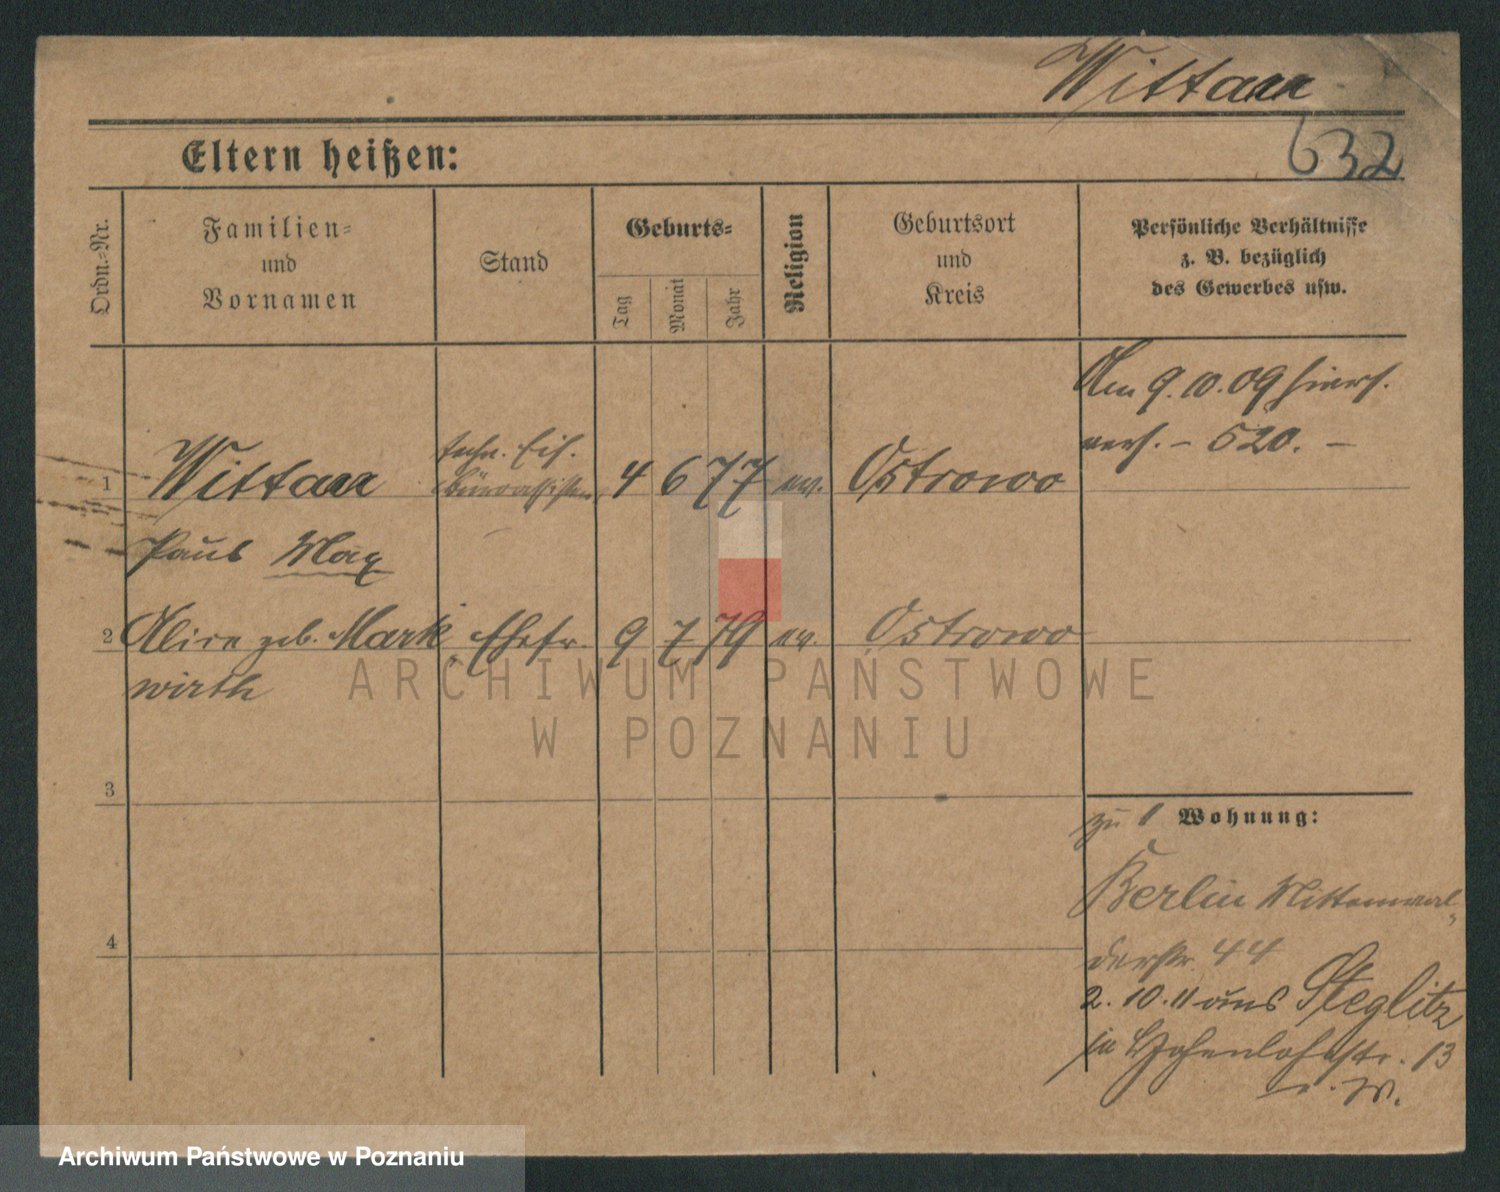 Wittarr
632
Eltern heißen:
Ordn.-Nr.
Familien-
und
Vornamen
Stand
Geburts-
Tag
Monat
Jahr
Religion
Geburtsort
und
Kreis
Persönliche Verhältnisse
z. B. bezüglich
des Gewerbes usw.
Am 9.10.09 hiers.
verh. – 520. –
1 Wittarr techn. Eis. 4 6 77 ev. Ostrowo
büroassistent
Paul Max
2 geb. Mark Ehefr. 9 7 79 ev. Ostrowo
wirth
3
zu 1 Wohnung:
Berlin Mittenwal-
4
derstr. 44
2.10.11 aus Steglitz
in Hohenlohestr. 13
ARCHIWUM PAŃSTWOWE
W POZNANIU
Archiwum Państwowe w Poznaniu